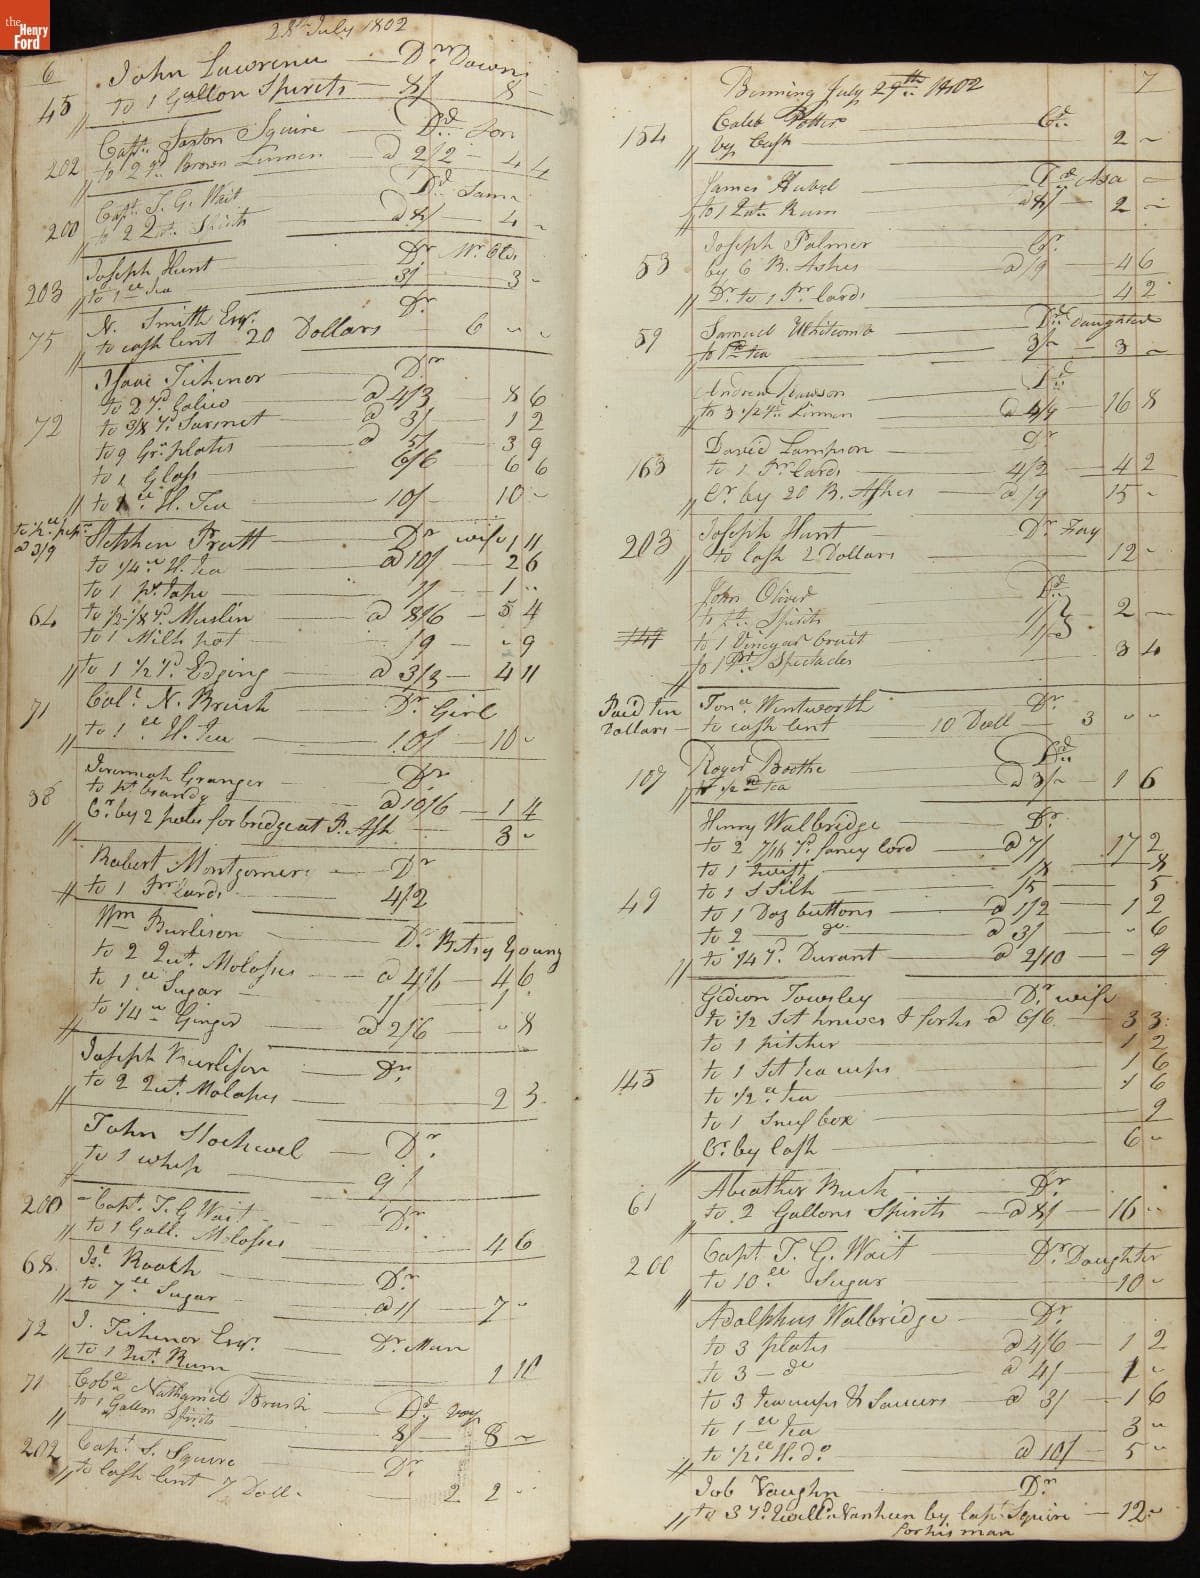 the
Henry
Ford
28th July 1802
6
John Lawrence Dr Down
45 to 1 Gallon Spirits 8/ 8 -
Capt. Saxton Squire Dd. Son
202 to 2 yd Brown Linnen a 2/2 - 4 4
Capt. T. G. Wait Dd Same
200 to 2 Quts Spirits a 8/ 4 -
Joseph Hunt Dr Mr Olds
203 to 1 ℔ Tea 3/ 3 -
N. Smith Esqr. Dr
75 to cash lent 20 Dollars 6 - -
Isaac Tichenor Dr
to 2 Yd Calico a 4/3 8 6
72 to 3/8 Yd Sarsnet a 3/ 1 2
to 9 Gr. plates a 5/ 3 9
to 1 Glass 6/6 6 6
to 1 ℔ H. Tea 10/ 10 -
to 1/2 ℔ pepr
a 3/9
Stephen Pratt Dr wife 1 11
to 1/4 ℔ H. Tea a 10/ 2 6
to 1 ps tape 1/ 1 -
64 to 1/2 1/8 Yd Muslin a 8/6 5 4
to 1 Milk pot /9 - 9
to 1 1/2 Yd Edging a 3/3 - 4 11
71 Col. N. Brush Dr Girl
to 1 ℔ H. Tea 10/ 10 -
Jeremiah Granger Dr
38 to pt brandy a 10/6 - 1 4
Cr by 2 poles for bridge at R. Ash 3 -
Robert Montgomery Dr
to 1 Pr Cards 4/2
Wm Burlison Dr Betsy Young
to 2 Qut. Molasses a 4/6 - 4 6
to 1 ℔ Sugar 1/ 1
to 1/4 ℔ Ginger a 2/6 - 8
Joseph Burlison Dr.
to 2 Qut. Molases 2 3
John Stockwel Dr
to 1 whip 9/
200 Capt. T. G Wait Dr.
to 1 Gall. Molasses 4 6
68 Is. Rooth Dr.
to 7 ℔ Sugar a 1/ 7 -
72 I. Tichenor Esqr. Dr Man
to 1 Qut. Rum 1 10
71 Nathaniel Brush Dd boy
to 1 Gallon Spirits 8/ 8 -
202 Capt. S. Squire Dr.
to Cash lent 7 Doll. 2 2 -
Benning July 29th 1802 7
Caleb Potter Cd.
154 by Cash 2 -
James Hubel Dd Asa
to 1 Qut. Rum a 8/ 2 -
Joseph Palmer Cr.
53 by 6 B. Ashes a /9 4 6
Dr. to 1 Pr. Cards 4 2
59 Samuel Whitcomb Dd daughter
to 1 ℔ tea 3/- 3 -
Andrew Dawson Dd
to 3 1/2 Yd. Linnen a 4/9 16 8
David Lampson Dr
163 to 1 Pr. Cards 4/2 4 2
Cr. by 20 B. Ashes a /9 15 -
203 Joseph Hunt Dr. Fay
to Cash 2 Dollars 12 -
John Oliver Dd.
to qt. Spirits 2 -
to 1 Vinegar Cruit 1/3
to 1 Pr Spectacles 3 4
Paid Ten
Dollars
Jona. Wentworth Dr.
to cash lent 10 Doll 3 - -
107 Roger Boothe Dd
to 1/2 ℔ tea a 3/- 1 6
Henry Walbridge Dr.
to 2 7/16 Yd. fancy Cord a 7/ 17 2
to 1 Twist /8 8
to 1 S Silk /5 5
49 to 1 Doz buttons a 1/2 1 2
to 2 do. a 3/ - 6
to 1/4 Yd. Durant a 2/10 - 9
Gideon Towsley Dr. wife
to 1/2 Set knives & forks a 6/6 3 3
to 1 pitcher 1 2
145 to 1 Set tea cups 1 6
to 1/2 ℔ tea 1 6
to 1 Snuf box 9
Cr. by Cash 6 -
Abiather Buck Dr.
61 to 2 Gallons Spirits a 8/ 16 -
Capt. T. G. Wait Dr. Daughter
200 to 10 ℔ Sugar 10 -
Adolphus Walbridge Dr.
to 3 plates a 4/6 1 2
to 3 - do a 4/ 1 -
to 3 teacups & Saucers a 3/ 1 6
to 1 ℔ tea 3 -
to 1/2 ℔ H. do a 10/ 5 -
Job Vaughn Dr
to 3 Yd Nankeen by Capt. Squire 12 -
for his man